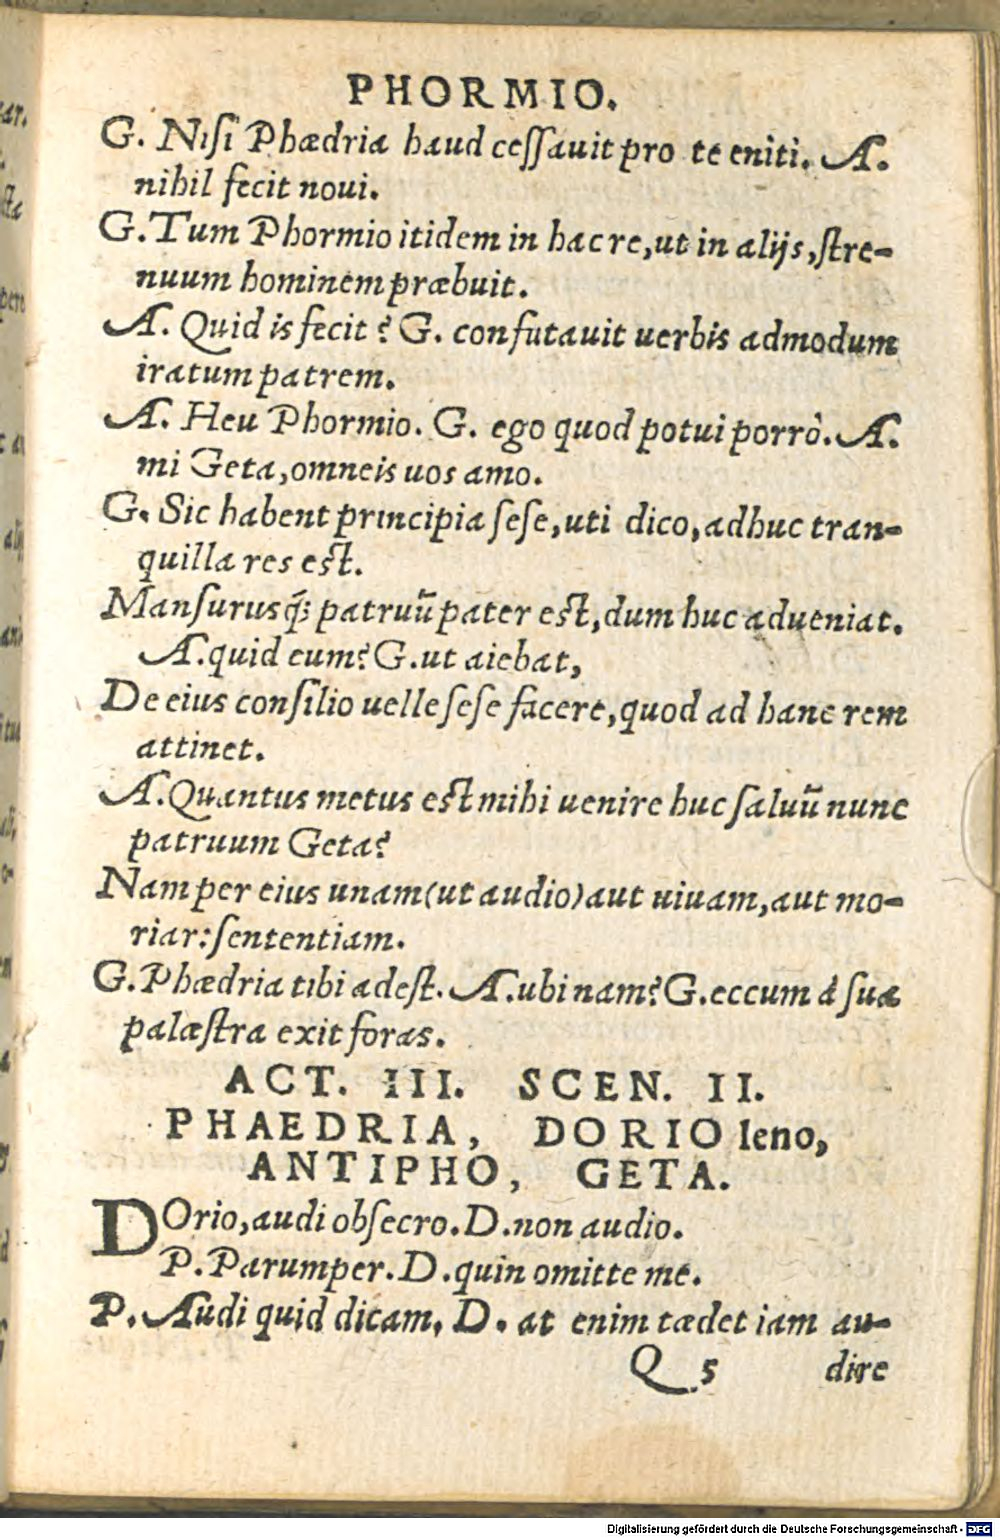 PHORMIO.
G. Nisi Phædria haud cessauit pro te eniti. A.
nihil fecit noui.
G. Tum Phormio itidem in hac re, ut in alijs, stre-
nuum hominem præbuit.
A. Quid is fecit? G. confutauit uerbis admodum
iratum patrem.
A. Heu Phormio. G. ego quod potui porrò. A.
mi Geta, omneis uos amo.
G. Sic habent principia sese, uti dico, adhuc tran-
quilla res est.
Mansurusq́; patruũ pater est, dum huc adueniat.
A. quid eum? G. ut aiebat,
De eius consilio uelle sese facere, quod ad hanc rem
attinet.
A. Quantus metus est mihi uenire huc saluũ nunc
patruum Geta?
Nam per eius unam (ut audio) aut uiuam, aut mo-
riar: sententiam.
G. Phædria tibi adest. A. ubi nam? G. eccum à sua
palæstra exit foras.
ACT. III. SCEN. II.
PHAEDRIA, DORIO leno,
ANTIPHO, GETA.
DOrio, audi obsecro. D. non audio.
P. Parumper. D. quin omitte me.
P. Audi quid dicam. D. at enim tædet iam au-
Q 5 dire
Digitalisierung gefördert durch die Deutsche Forschungsgemeinschaft - DFG